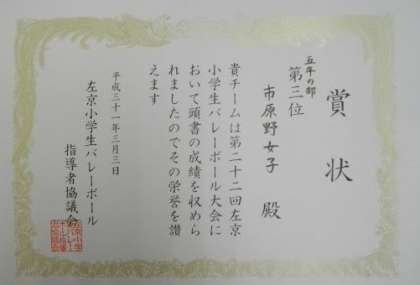 賞状
五年の部
第三位
市原野女子 殿
貴チームは第二十二回左京
小学生バレーボール大会に
おいて頭書の成績を収めら
れましたのでその栄誉を讃
えます
平成三十一年三月三日
左京小学生バレーボール
指導者協議会